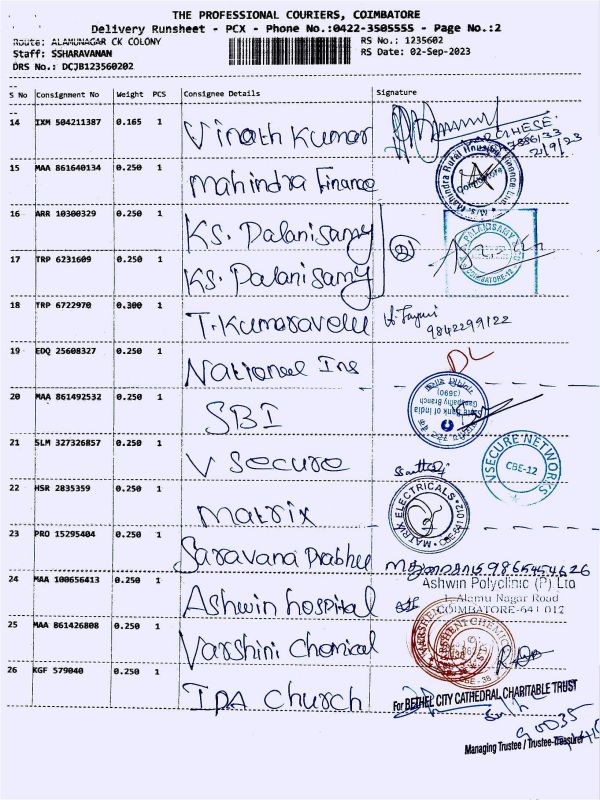 THE PROFESSIONAL COURIERS, COIMBATORE
Delivery Runsheet - PCX - Phone No.:0422-3505555 - Page No.:2
Route: ALAMUNAGAR CK COLONY
RS No.: 1235602
Staff: SSHARAVANAN
RS Date: 02-Sep-2023
DRS No.: DCJB123560202
S No Consignment No Weight PCS Consignee Details Signature
14 IXM 504211387 0.165 1 Vinoth Kumar
21/9/23
15 MAA 861640134 0.250 1 Mahindra Finance
M/s. Mahindra Rural Housing Finance Ltd. Coimbatore
16 ARR 10300329 0.250 1 KS. Palanisamy
17 TRP 6231609 0.250 1 KS. Palanisamy
PALANISAMY COIMBATORE-12
18 TRP 6722970 0.300 1 T. Kumaravelu
9842299122
19 EDQ 25608327 0.250 1 National Ins
DL
20 MAA 861492532 0.250 1 SBI
State Bank of India
Ganapathy Branch
(3690)
21 SLM 327326857 0.250 1 V Secure
VSECURE NETWORKS CBE-12
22 HSR 2835359 0.250 1 Matrix
MATRIX ELECTRICALS CBE-641 012
23 PRO 15295404 0.250 1 Saravana Prabhu
9865454626
24 MAA 100656413 0.250 1 Ashwin hospital
Ashwin Polyclinic (P) Ltd
1, Alamu Nagar Road
COIMBATORE-641 012
25 MAA 861426808 0.250 1 Varshini Chemical
26 KGF 579040 0.250 1 IPA Church
For BETHEL CITY CATHEDRAL CHARITABLE TRUST
Managing Trustee / Trustee-Treasurer